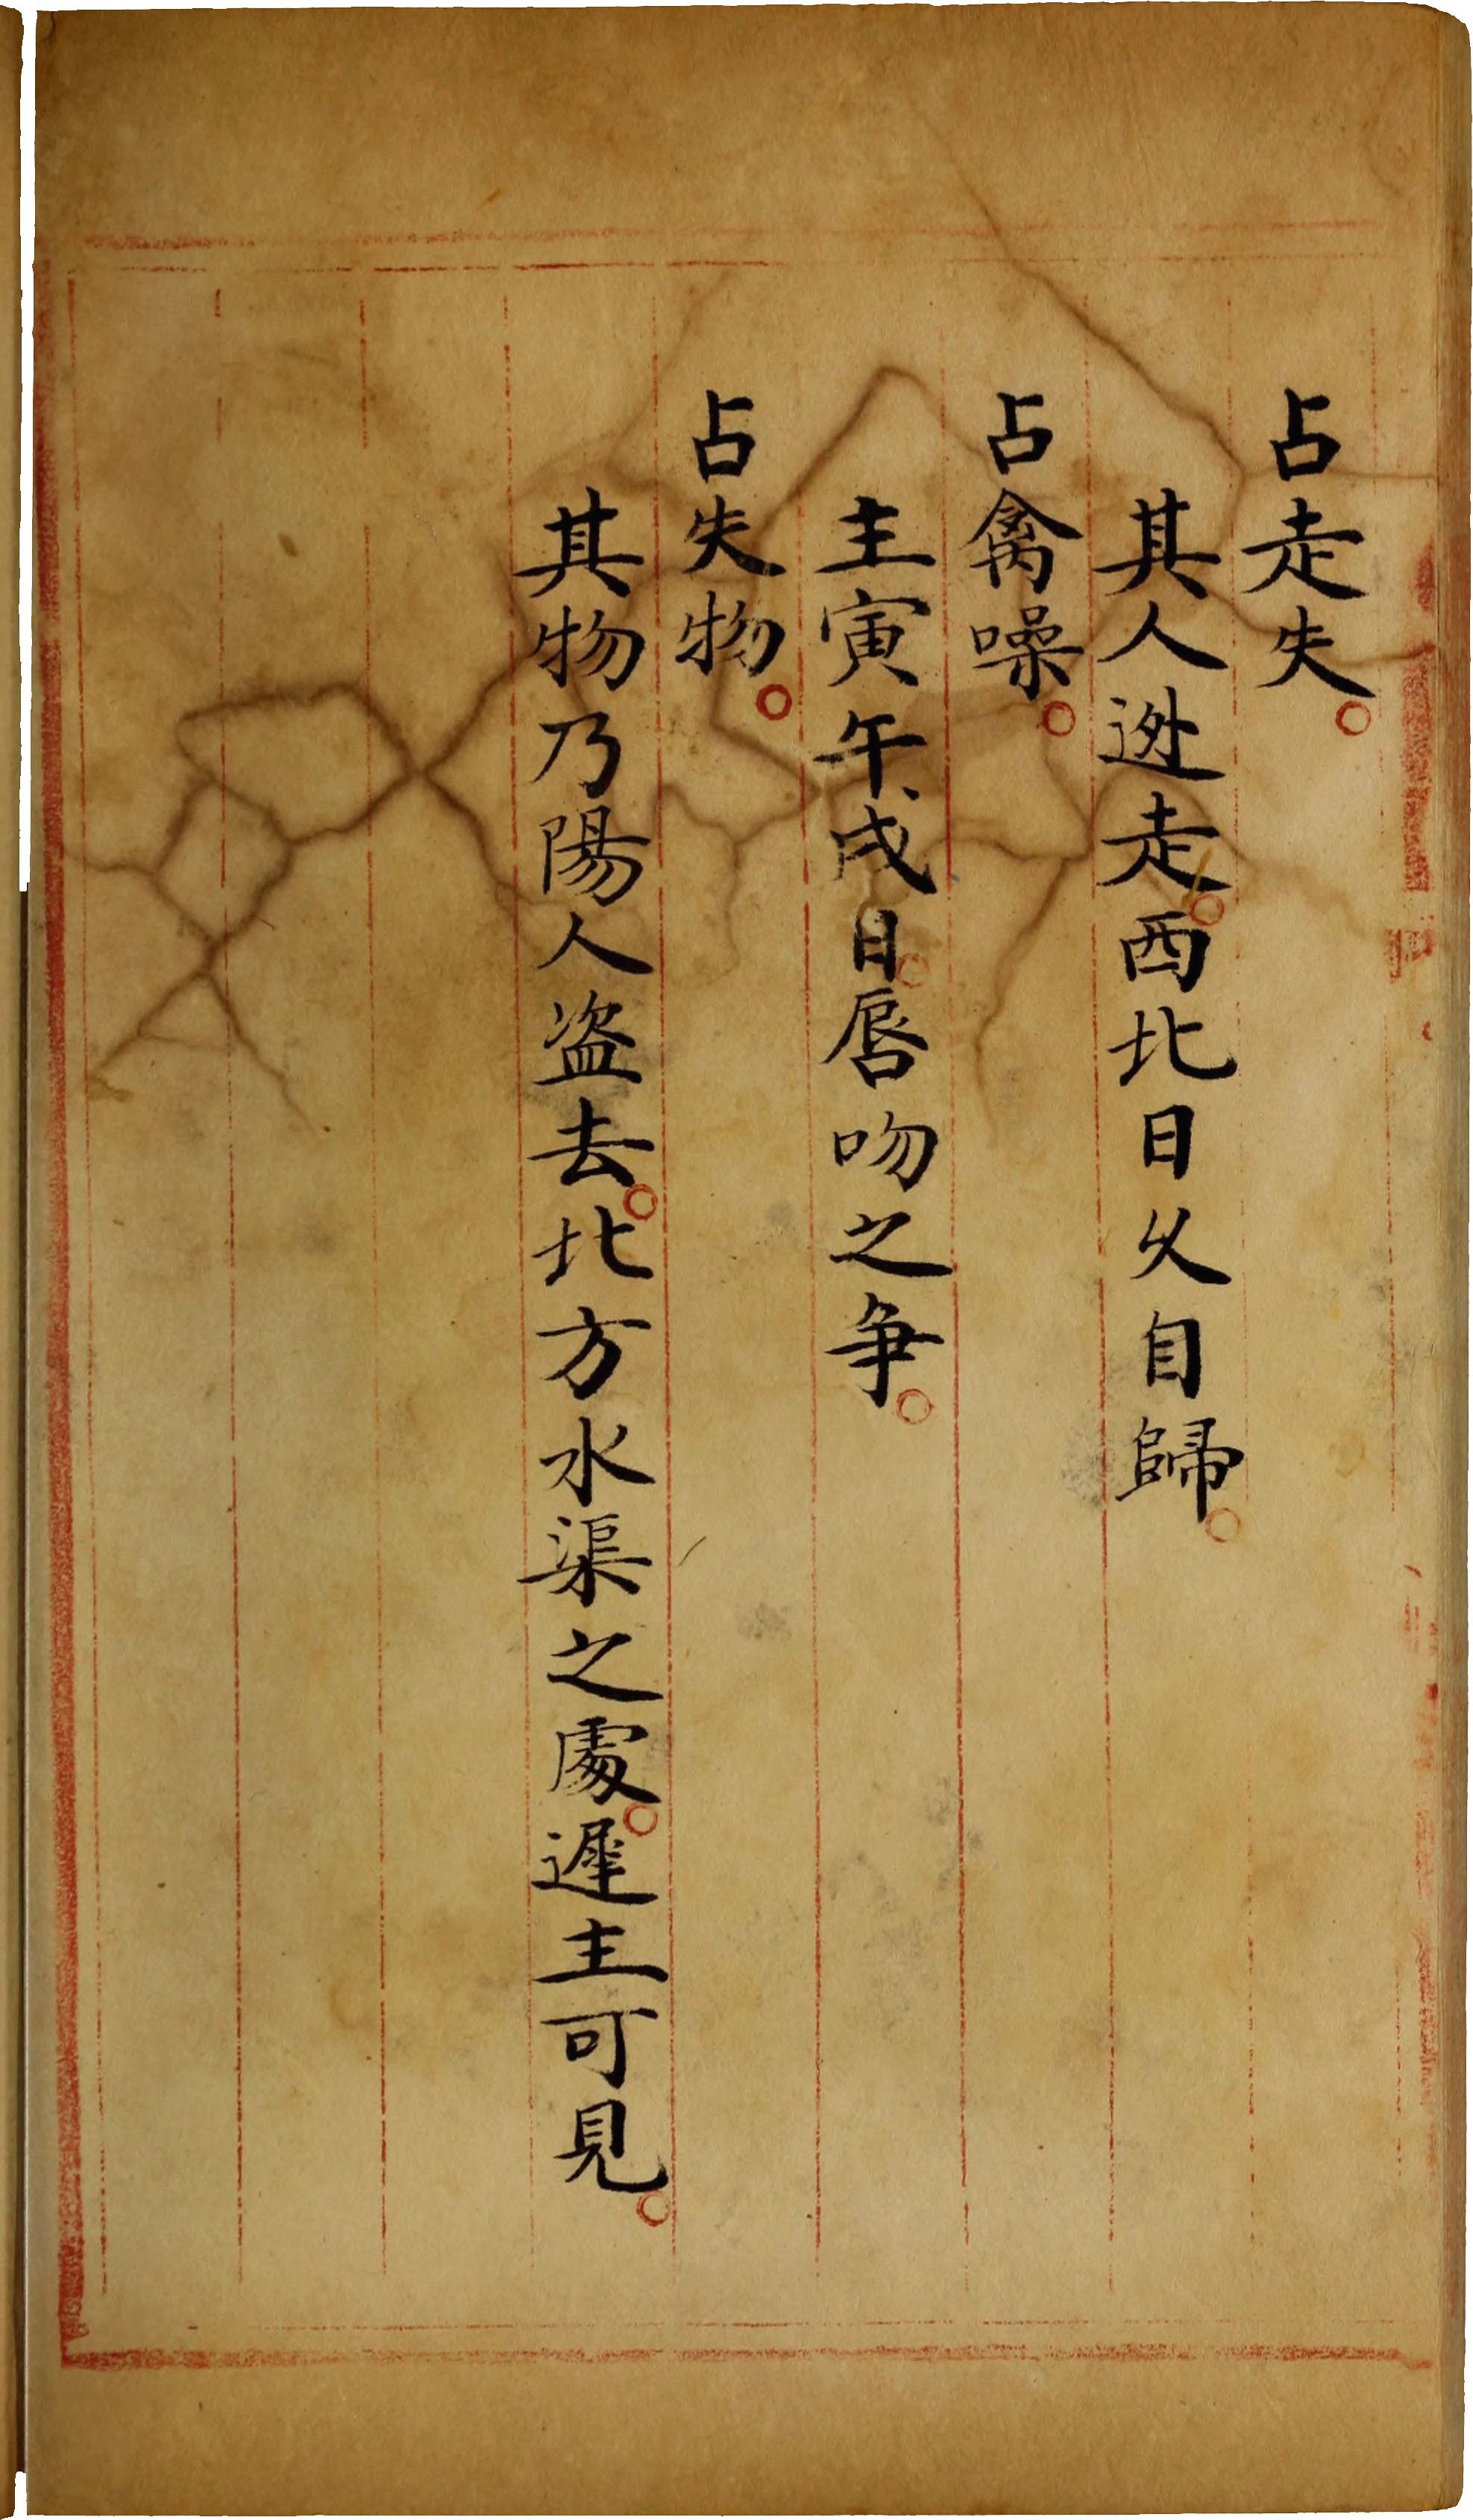 占走失。
其人逃走。西北日久自歸。
占禽噪。
主寅午戌日。唇吻之争。
占失物。
其物乃陽人盗去。北方水渠之處。遲主可見。